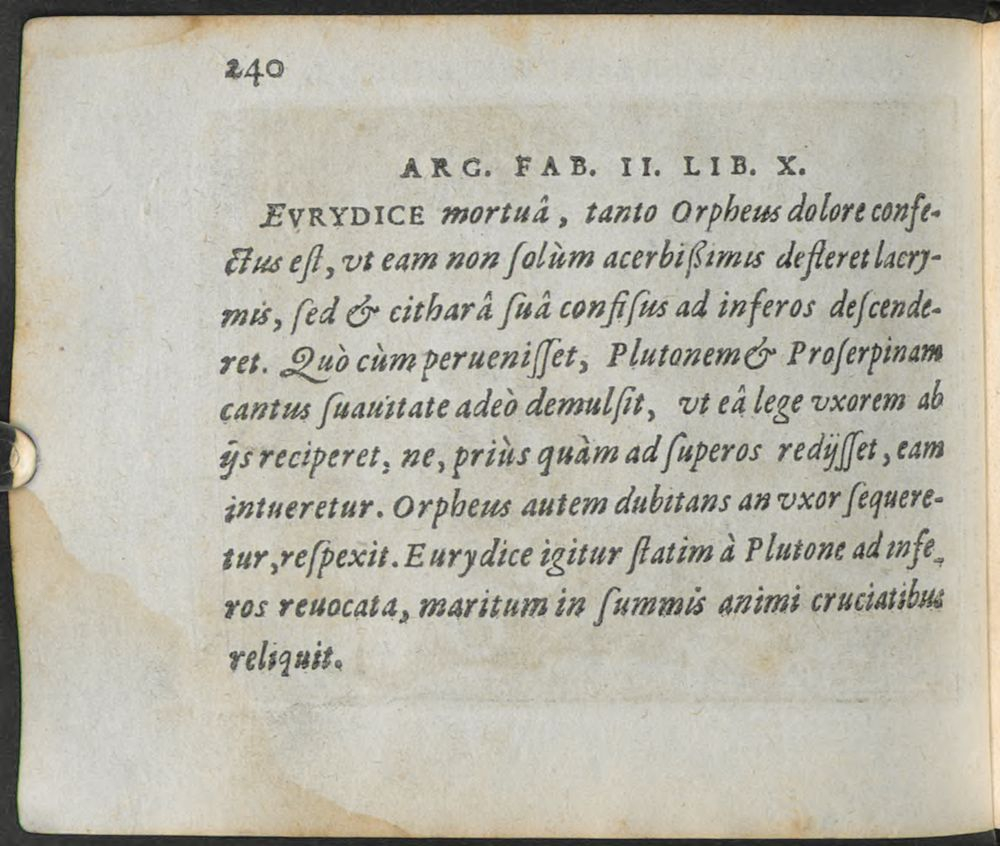 240
ARG. FAB. II. LIB. X.
EVRYDICE mortuâ, tanto Orpheus dolore confe-
ctus eſt, vt eam non ſolùm acerbißimis defleret lacry-
mis, ſed & citharâ ſuâ confiſus ad inferos deſcende-
ret. Quò cùm perueniſſet, Plutonem & Proſerpinam
cantus ſuauitate adeò demulſit, vt eâ lege vxorem ab
ijs reciperet, ne, priùs quàm ad ſuperos redijſſet, eam
intueretur. Orpheus autem dubitans an vxor ſequere-
tur, reſpexit. Eurydice igitur ſtatim à Plutone ad infe-
ros reuocata, maritum in ſummis animi cruciatibus
reliquit.